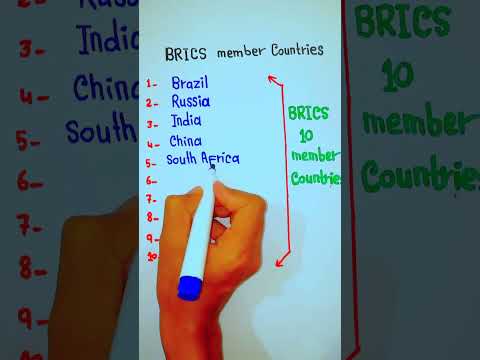 BRICS member Countries
1- Brazil
2- Russia
3- India
4- China
5- South Africa
6-
7-
8-
9-
10-
BRICS
10
member
Countries
2- Russia
3- India
4- China
5- South
6-
7-
8-
9-
BRICS
10
member
Countries